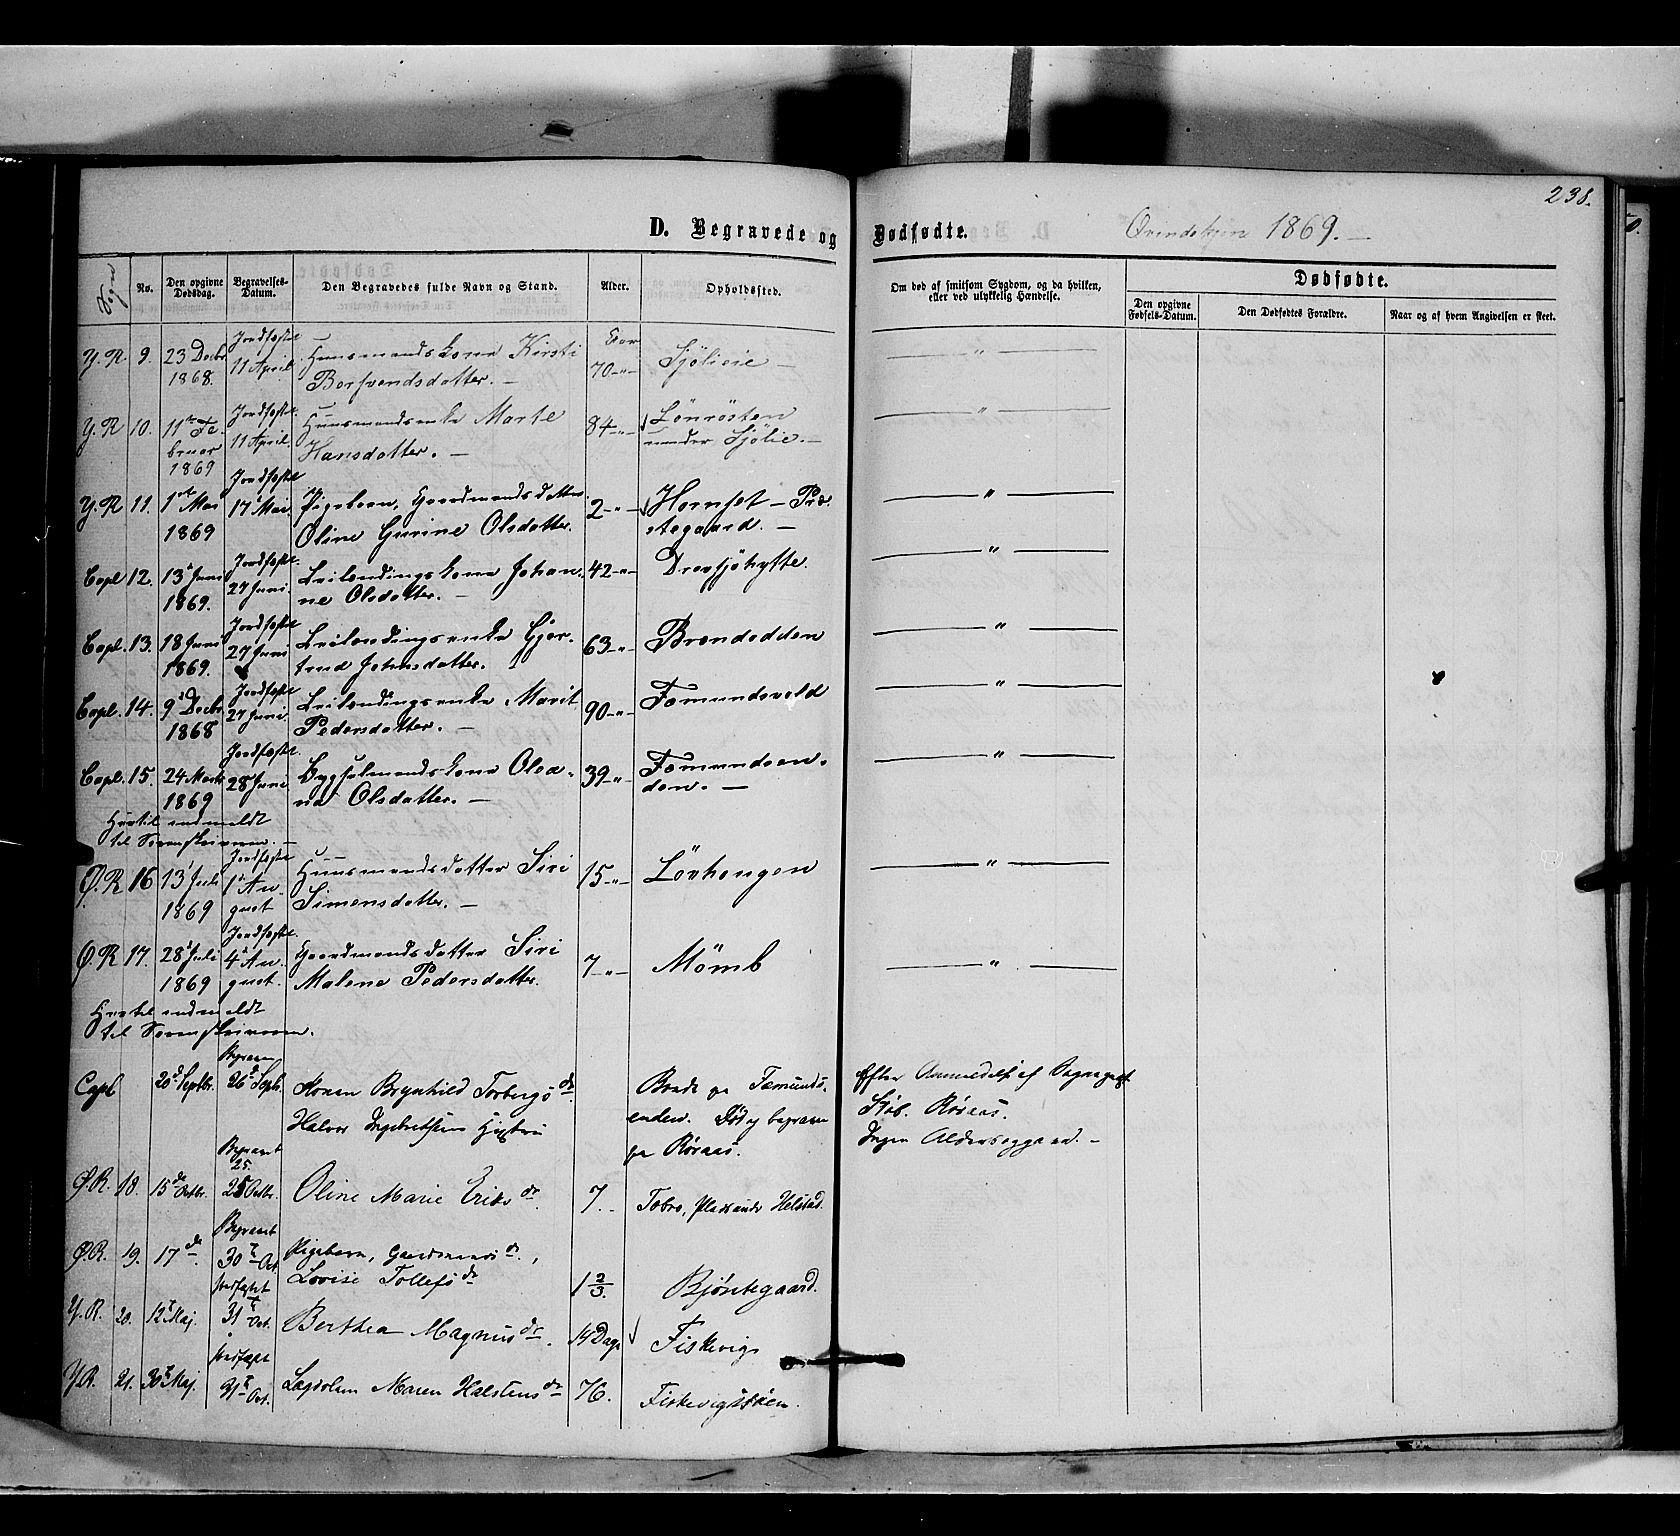 238.
D. Begravede og Dødfødte. Qvindekjøn 1869.
Sogn
No.
Den opgivne Dødsdag.
Begravelses-Datum.
Den Begravedes fulde Navn og Stand.
Alder.
Opholdssted.
Om død af smitsom Sygdom, og da hvilken, eller ved ulykkelig Hændelse.
Dødfødte.
Den opgivne Fødsels-Datum.
Den Dødfødtes Forældre.
Naar og af hvem Angivelsen er skeet.
Y. R. 9. 23 Decbr 1868. Jordfæste 11 April Huusmandskone Kirsti 70 - " - Sjølieie -
Y. R 10. 11te Februar 1869 Jordfæste. 11 April Huusmandsenke Marte Hansdatter. - 84 - " - Lönrösten under Sjølie. -
Y. R 11. 1st Mai 1869 Jordfæste 17 Mai. Pigebarn, Gaardmandsdatter Oline Gurine Olsdatter. 2 - " - Hornset - Præstegaard. -
Capl 12. 13 Juni 1869. Jordfæste. 27 Juni. Leilændingskone Johanne Olsdatter. - 42 - " - Drevsjöhytte.
Capl. 13. 18 Juni 1869. Jordfæste 27 Juni Leilændingsenke Gjertrud Johnsdatter. 63 - " - Brændodden
Capl. 14. 9 Decbr 1868 Jordfæste 27 Juni. Leilændingsenke Marit Pedersdatter. - 90 - " - Fæmundsvold
Capl. 15. 24 Marts 1869 Jordfæste. 28 Juni Bygselmandskone Olea- Olsdatter. - 39 - " - Fæmundsenden. -
Hertil indmeldt
til Sorenskriveren. -
Ø. R 16 13 Juli 1869 Jordfæste 1 August Huusmandsdatter Siri Simensdatter. - 15 - " - Lövhaugen
Ø. R 17. 28 Juli 1869 Jordfæste. 4 August. Gaardmandsdatter Siri Malene Pedersdatter. 7 - " - Mömb
Hertil indmeldt
til Sorenskriveren.
Capl 20d Septbr. Begraven 26d Septbr. Konen Brynhild Torbergsdr. Halvor Ingebretsens Hustru Boede paa Fæmundsenden. Død og begraven paa Røraas. Efter Anmeldelse af Sognepræst Røraas. Ingen Aldersopgave. -
Ø. R. 18. 15de Octbr. Begravet 25. 25 Octbr. Oline Marie Eriksdr. 7. - Tobro, Plads under Helstad.
Ø. R. 19. 17de Begravet 30te Oct Pigebarn, Gaardmandsdr., Lovise Tollefsdr 1 2/3. Bjöntegaard.
Y. R. 20. 12te Maj. Jordfæstet 31te Oct. Berthea Magnusdr. 14 Dage Fiskevig
Y. R. 21. 30te Maj. Jordfæst 31te Oct. Lægdslem Maren Halstensdr 76. Fiskevigsåen.